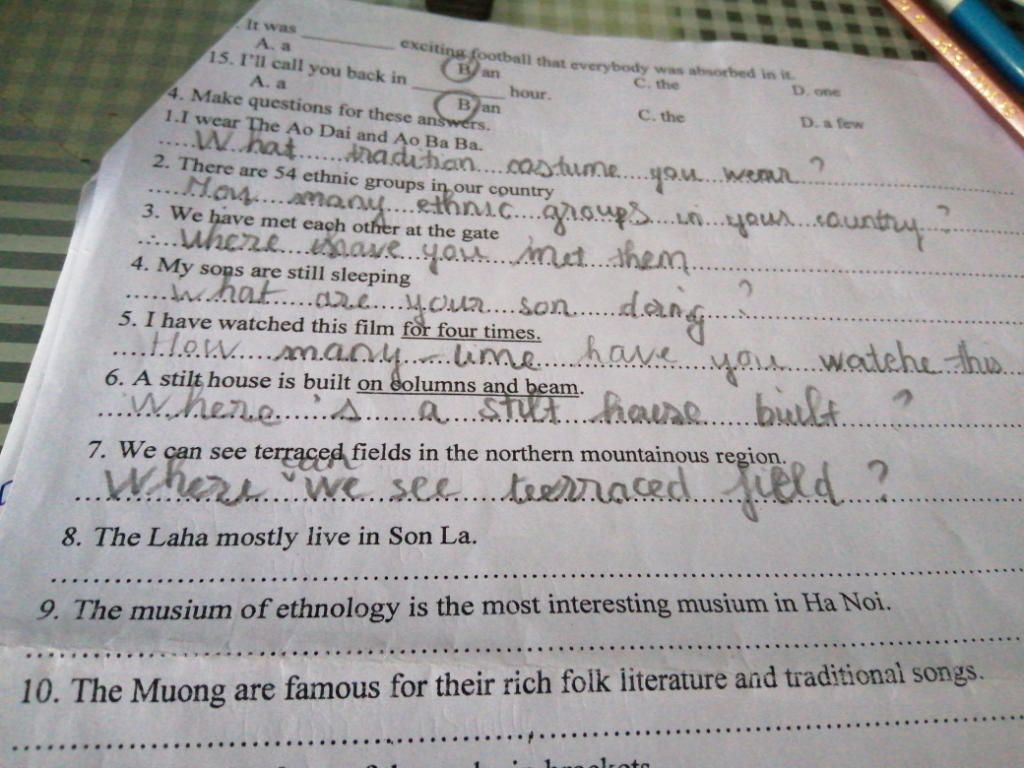 . It was ________ exciting football that everybody was absorbed in it.
A. a B. an C. the D. one
15. I'll call you back in ________ hour.
A. a B. an C. the D. a few
4. Make questions for these answers.
1.I wear The Ao Dai and Ao Ba Ba.
What tradition costume you wear ?
2. There are 54 ethnic groups in our country
How many ethnic groups in your country ?
3. We have met each other at the gate
Where have you met them
4. My sons are still sleeping
What are your son doing ?
5. I have watched this film for four times.
How many time have you watche this
6. A stilt house is built on columns and beam.
Where 's a stilt house built ?
7. We can see terraced fields in the northern mountainous region.
Where can we see teerraced field ?
8. The Laha mostly live in Son La.
9. The musium of ethnology is the most interesting musium in Ha Noi.
10. The Muong are famous for their rich folk literature and traditional songs.
in brackets